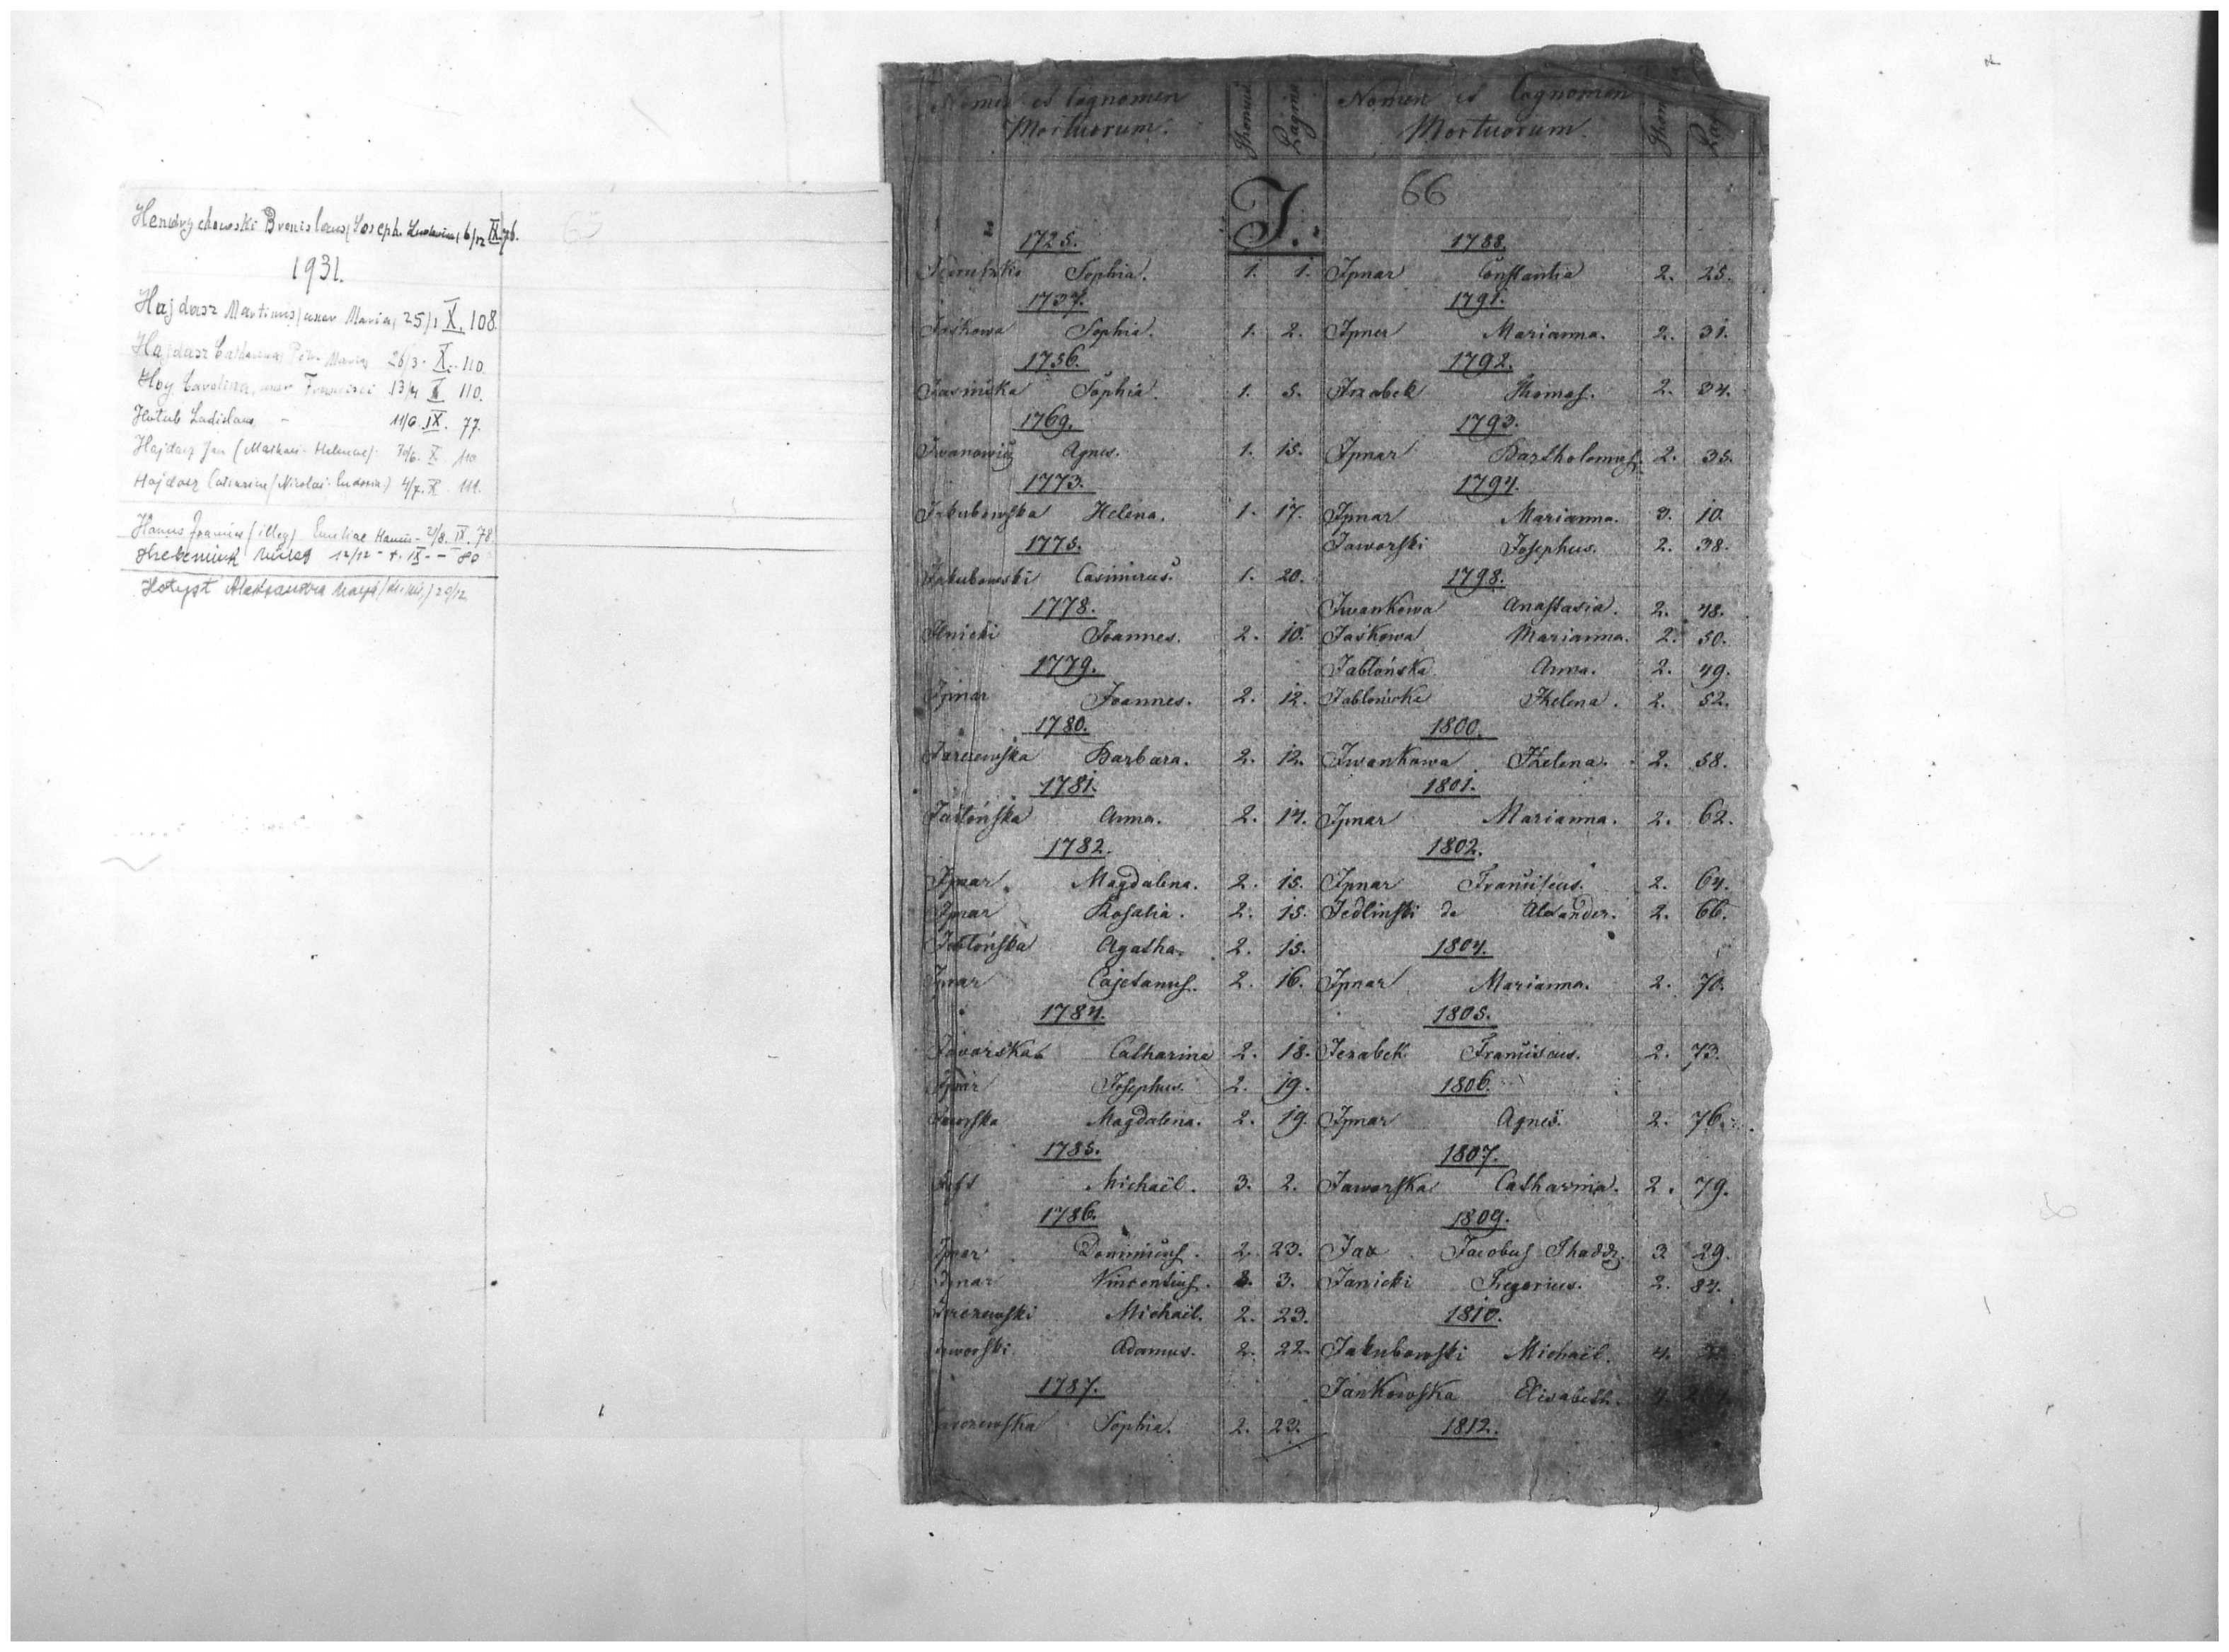 Hendrychowski Bronislaus (Joseph. 6/12 IX. 76.
1931.
Hajdasz Martinus / uxor Maria, 25/1 X. 108.
Hajdasz Maria 26/3 - X. 110
Hoy Carolina, uxor Francisci 13/4 110.
Hotub Ladislaus - 11/6 IX. 77.
Hajdasz Jan (Mathaei - Helenae) X. 110
Hajdasz Catharina (Nicolai - ) 4/7. X 111.
Hanus (illeg) Emiliae Hanus - 2/8. IX. 78
12/12 - IX - - 80
29/12
65
Nomen et Cognomen
Mortuorum.
Thomus
Pagina
Nomen et Cognomen
Mortuorum.
Thom
Pag
66
J.
1725.
Sophia. 1. 1.
1737.
Jaśkowa Sophia. 1. 2.
1756.
Jasińska Sophia. 1. 5.
1769.
Iwanowicz Agnes. 1. 15.
1773.
Jakubowska Helena. 1. 17.
1775.
Jakubowski Casimirus. 1. 20.
1778.
Ilnicki Joannes. 2. 10.
1779.
Ipnar Joannes. 2. 12.
1780.
Jarczewska Barbara. 2. 12.
1781.
Jabłońska Anna. 2. 14.
1782.
Ipnar Magdalena. 2. 15.
Ipnar Rosalia. 2. 15.
Jabłońska Agatha. 2. 15.
Ipnar Cajetanus. 2. 16.
1784.
Javorska Catharina 2. 18.
Ipnar Josephus. 2. 19.
Jaworska Magdalena. 2. 19.
1785.
Michaël. 3. 2.
1786.
Ipnar Dominicus. 2. 23.
Ipnar Vincentius. 3.
Jarczewski Michaël. 2. 23.
Jaworski Adamus. 2. 22.
1787.
Jarczewska Sophia. 2. 23.
1788.
Ipnar Constantia 2. 25.
1791.
Ipner Marianna. 2. 31.
1792.
Irzabek Thomas. 2. 34.
1793.
Ipnar Bartholomeus. 2. 35.
1794.
Ipnar Marianna. 3. 10.
Jaworski Josephus. 2. 38.
1798.
Iwankowa Anastasia. 2. 48.
Jaśkowa Marianna. 2. 50.
Jabłońska Anna. 2. 49.
Jabłońska Helena. 2. 52.
1800.
Iwankowa Helena. 2. 58.
1801.
Ipnar Marianna. 2. 62.
1802.
Ipnar Franciscus. 2. 64.
Jedlinski de Alexander. 2. 66.
1804.
Ipnar Marianna. 2. 70.
1805.
Jerabek Franciscus. 2. 73.
1806.
Ipnar Agnes. 2. 76.
1807.
Jaworska Catharina. 2. 79.
1809.
Jax Jacobus Thadd. 3 29.
Janicki Gregorius. 2. 84.
1810.
Jakubowski Michaël. 4.
Jankowska Elisabeth. 4.
1812.